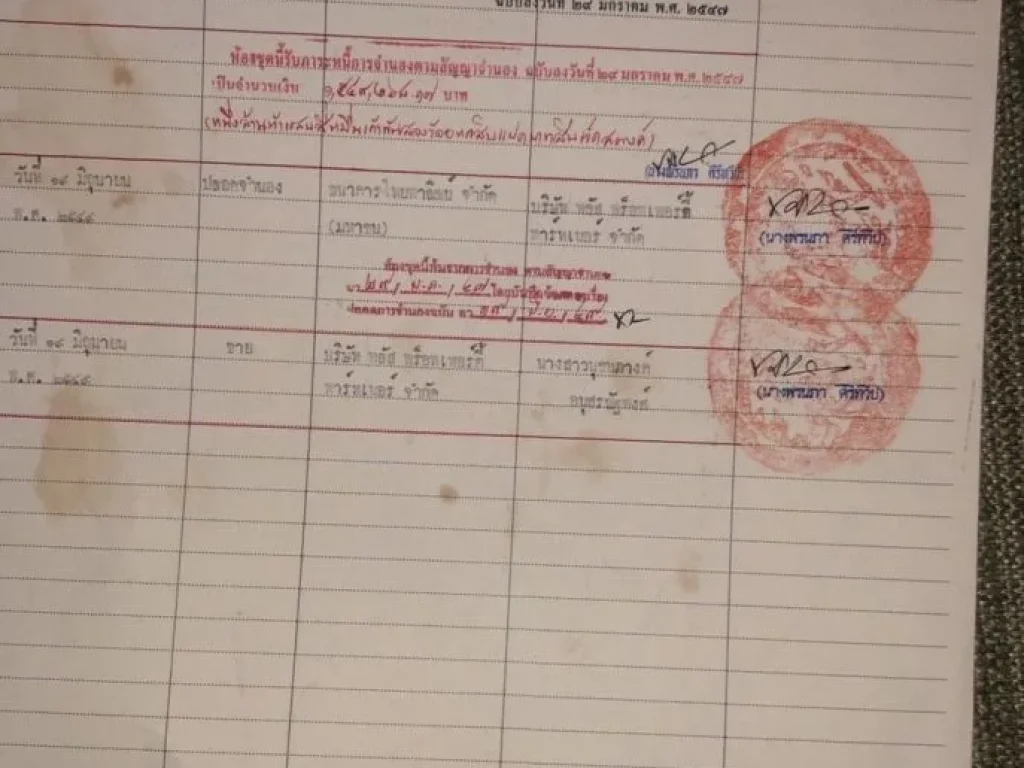 ฉบับลงวันที่ ๒๙ มกราคม พ.ศ. ๒๕๔๗
ห้องชุดนี้รับภาระหนี้การจำนองตามสัญญาจำนอง ฉบับลงวันที่ ๒๙ มกราคม พ.ศ. ๒๕๔๗
เป็นจำนวนเงิน ๑,๕๔๙,๒๖๘.๑๗ บาท
(หนึ่งล้านห้าแสนสี่หมื่นเก้าพันสองร้อยหกสิบแปดบาทสิบเจ็ดสตางค์)
วันที่ ๑๙ มิถุนายน ปลอดจำนอง ธนาคารไทยพาณิชย์ จำกัด บริษัท พลัส พร็อพเพอร์ตี้
พ.ศ. ๒๕๔๙ (มหาชน) พาร์ทเนอร์ จำกัด (นางพรนภา ศิริทวีป)
ห้องชุดนี้พ้นจากการจำนอง ตามสัญญาจำนอง
๒๙ / ม.ค. / ๔๗
ปลอดการจำนองฉบับ ลว ๑๙ / มิ.ย. / ๔๙
วันที่ ๑๙ มิถุนายน ขาย บริษัท พลัส พร็อพเพอร์ตี้ นางสาวนุชนภางค์
พ.ศ. ๒๕๔๙ พาร์ทเนอร์ จำกัด (นางพรนภา ศิริทวีป)